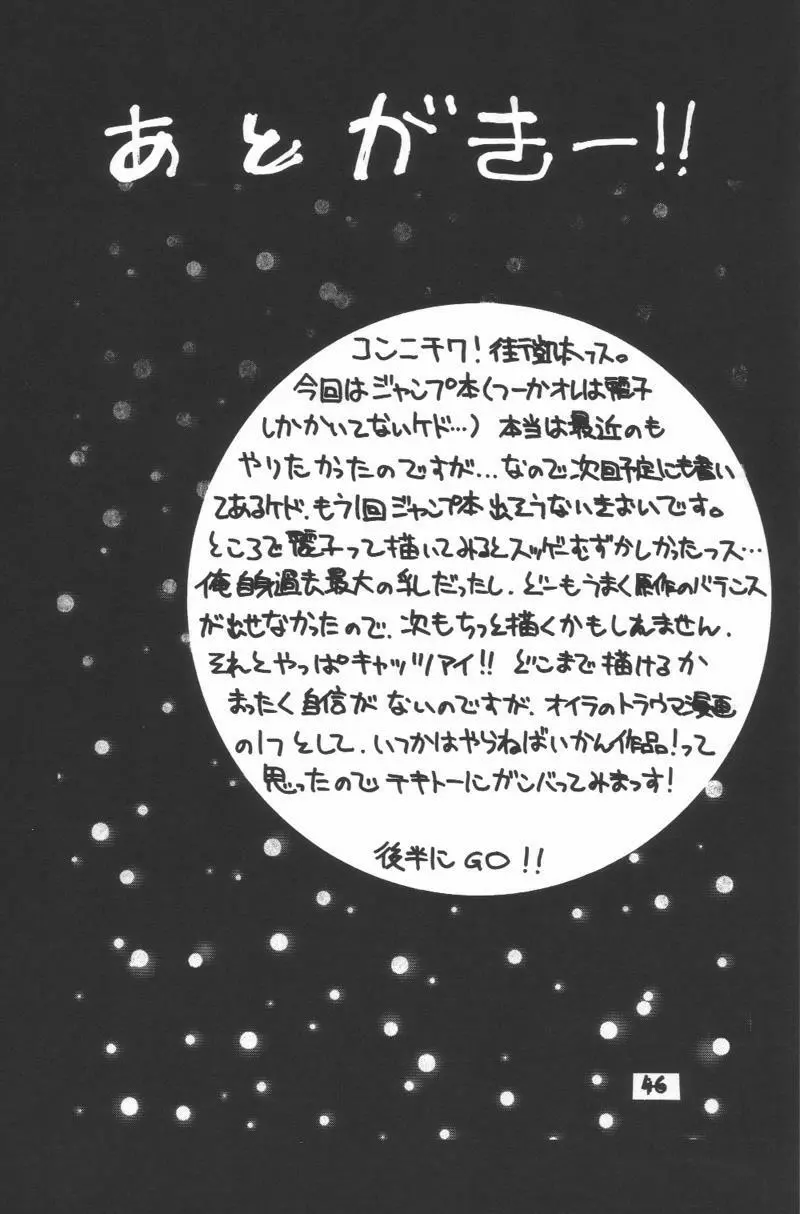 あとがきー!!
コンニチワ! 街道はっス。
今回はジャンプ本(つーかオレは麗子
しかかいてないケド…) 本当は最近のも
やりたかったのですが…なので次回予定にも書い
てあるケド、もう1回ジャンプ本出そうないきおいです。
ところで麗子って描いてみるとスッゲむずかしかったっス…
俺自身過去最大の乳だったし、どーもうまく原作のバランス
が出せなかったので、次もちっと描くかもしれません、
それとやっぱキャッツアイ!! どこまで描けるか
まったく自信がないのですが、オイラのトラウマ漫画
の1つとして、いつかはやらねばいかん作品!って
思ったのでテキトーにガンバってみまっす!
後半にGO!!
46